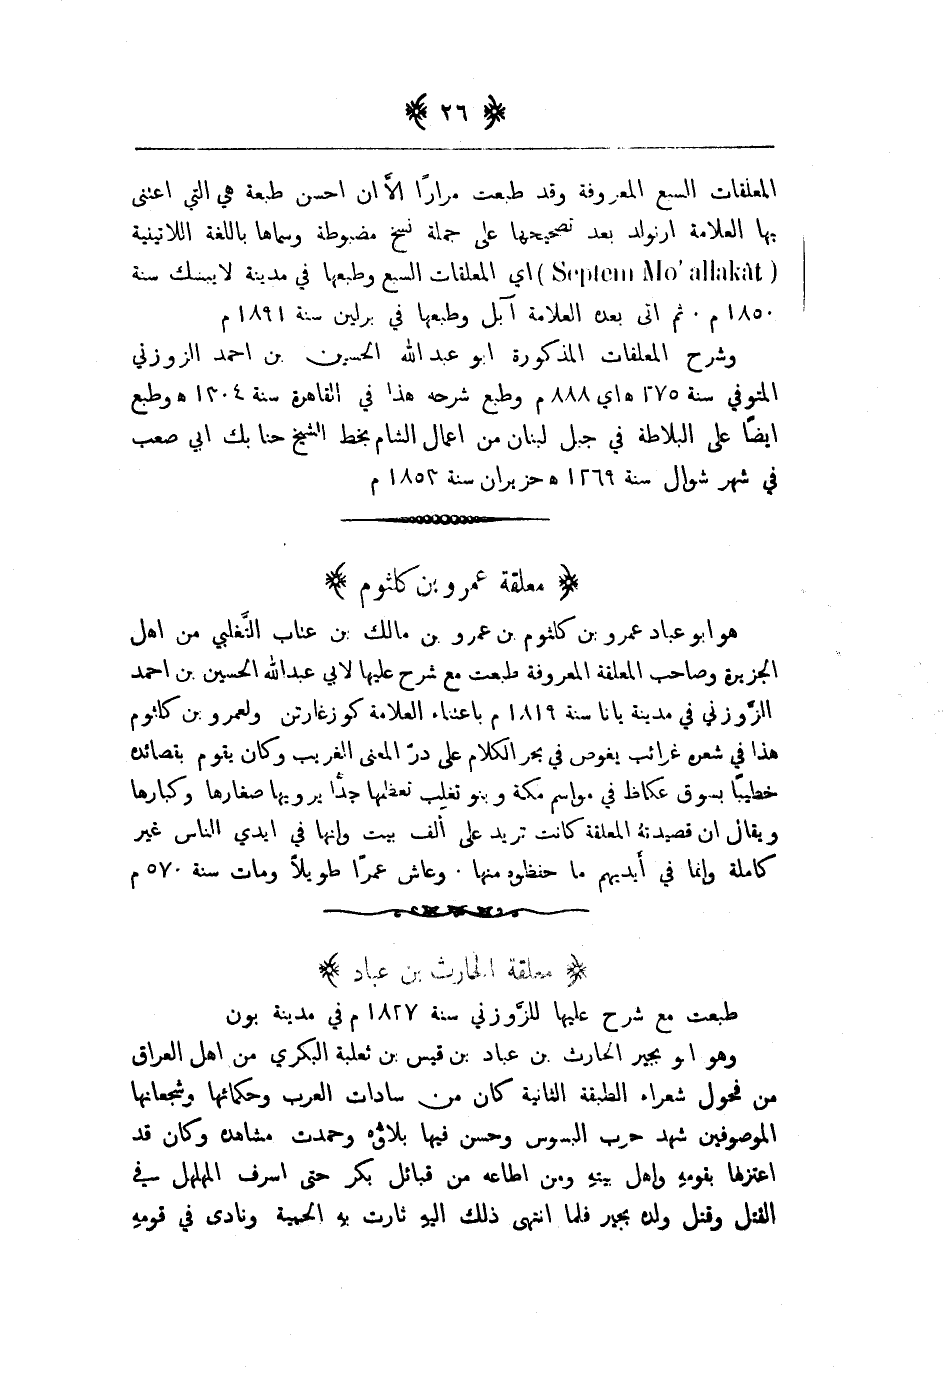 ﴿ ٢٦ ﴾
المعلقات السبع المعروفة وقد طبعت مرارًا الَّا ان احسن طبعة هي التي اعتنى
بها العلامة ارنولد بعد تصحيحها على جملة نسخ مضبوطة وسماها باللغة اللاتينية
( Septem Mo'allakât ) اي المعلقات السبع وطبعها في مدينة لايبسك سنة
١٨٥٠ م ٠ ثم اتى بعده العلامة آبل وطبعها في برلين سنة ١٨٩١ م
وشرح المعلقات المذكورة ابو عبد الله الحسين بن احمد الزوزني
المتوفي سنة ٢٧٥ ه‍ اي ٨٨٨ م وطبع شرحه هذا في القاهرة سنة ١٣٠٤ ه‍ وطبع
ايضًا على البلاطة في جبل لبنان من اعمال الشام بخط الشيخ حنا بك ابي صعب
في شهر شوال سنة ١٢٦٩ ه‍ حزيران سنة ١٨٥٣ م
﴿ معلقة عمرو بن كلثوم ﴾
هو ابو عباد عمرو بن كلثوم بن عمرو بن مالك بن عتاب التَّغلبي من اهل
الجزيرة وصاحب المعلقة المعروفة طبعت مع شرح عليها لابي عبدالله الحسين بن احمد
الزَّوزني في مدينة يانا سنة ١٨١٩ م باعتناء العلامة كوزغارتن ولعمرو بن كلثوم
هذا في شعره غرائب يغوص في بحر الكلام على درّ المعنى الغريب وكان يقوم بقصائده
خطيبًا بسوق عكاظ في مواسم مكة وبنو تغلب تعظمها جدًّا يرويها صغارها وكبارها
ويقال ان قصيدتهُ المعلقة كانت تزيد على أَلف بيت وانها في ايدي الناس غير
كاملة وانما في أَيديهم ما حفظوه منها ٠ وعاش عمرًا طويلاً ومات سنة ٥٧٠ م
﴿ معلقة الحارث بن عباد ﴾
طبعت مع شرح عليها للزَّوزني سنة ١٨٢٧ م في مدينة بون
وهو ابو بجير الحارث بن عباد بن قيس بن ثعلبة البكري من اهل العراق
من فحول شعراء الطبقة الثانية كان من سادات العرب وحكمائها وشجعانها
الموصوفين شهد حرب البسوس وحسن فيها بلاؤه وحمدت مشاهده وكان قد
اعتزلها بقومهِ واهل بيتهِ ومن اطاعه من قبائل بكر حتى اسرف المهلهل في
القتل وقتل ولده بجير فلما انتهى ذلك اليهِ ثارت بهِ الحمية ونادى في قومهِ